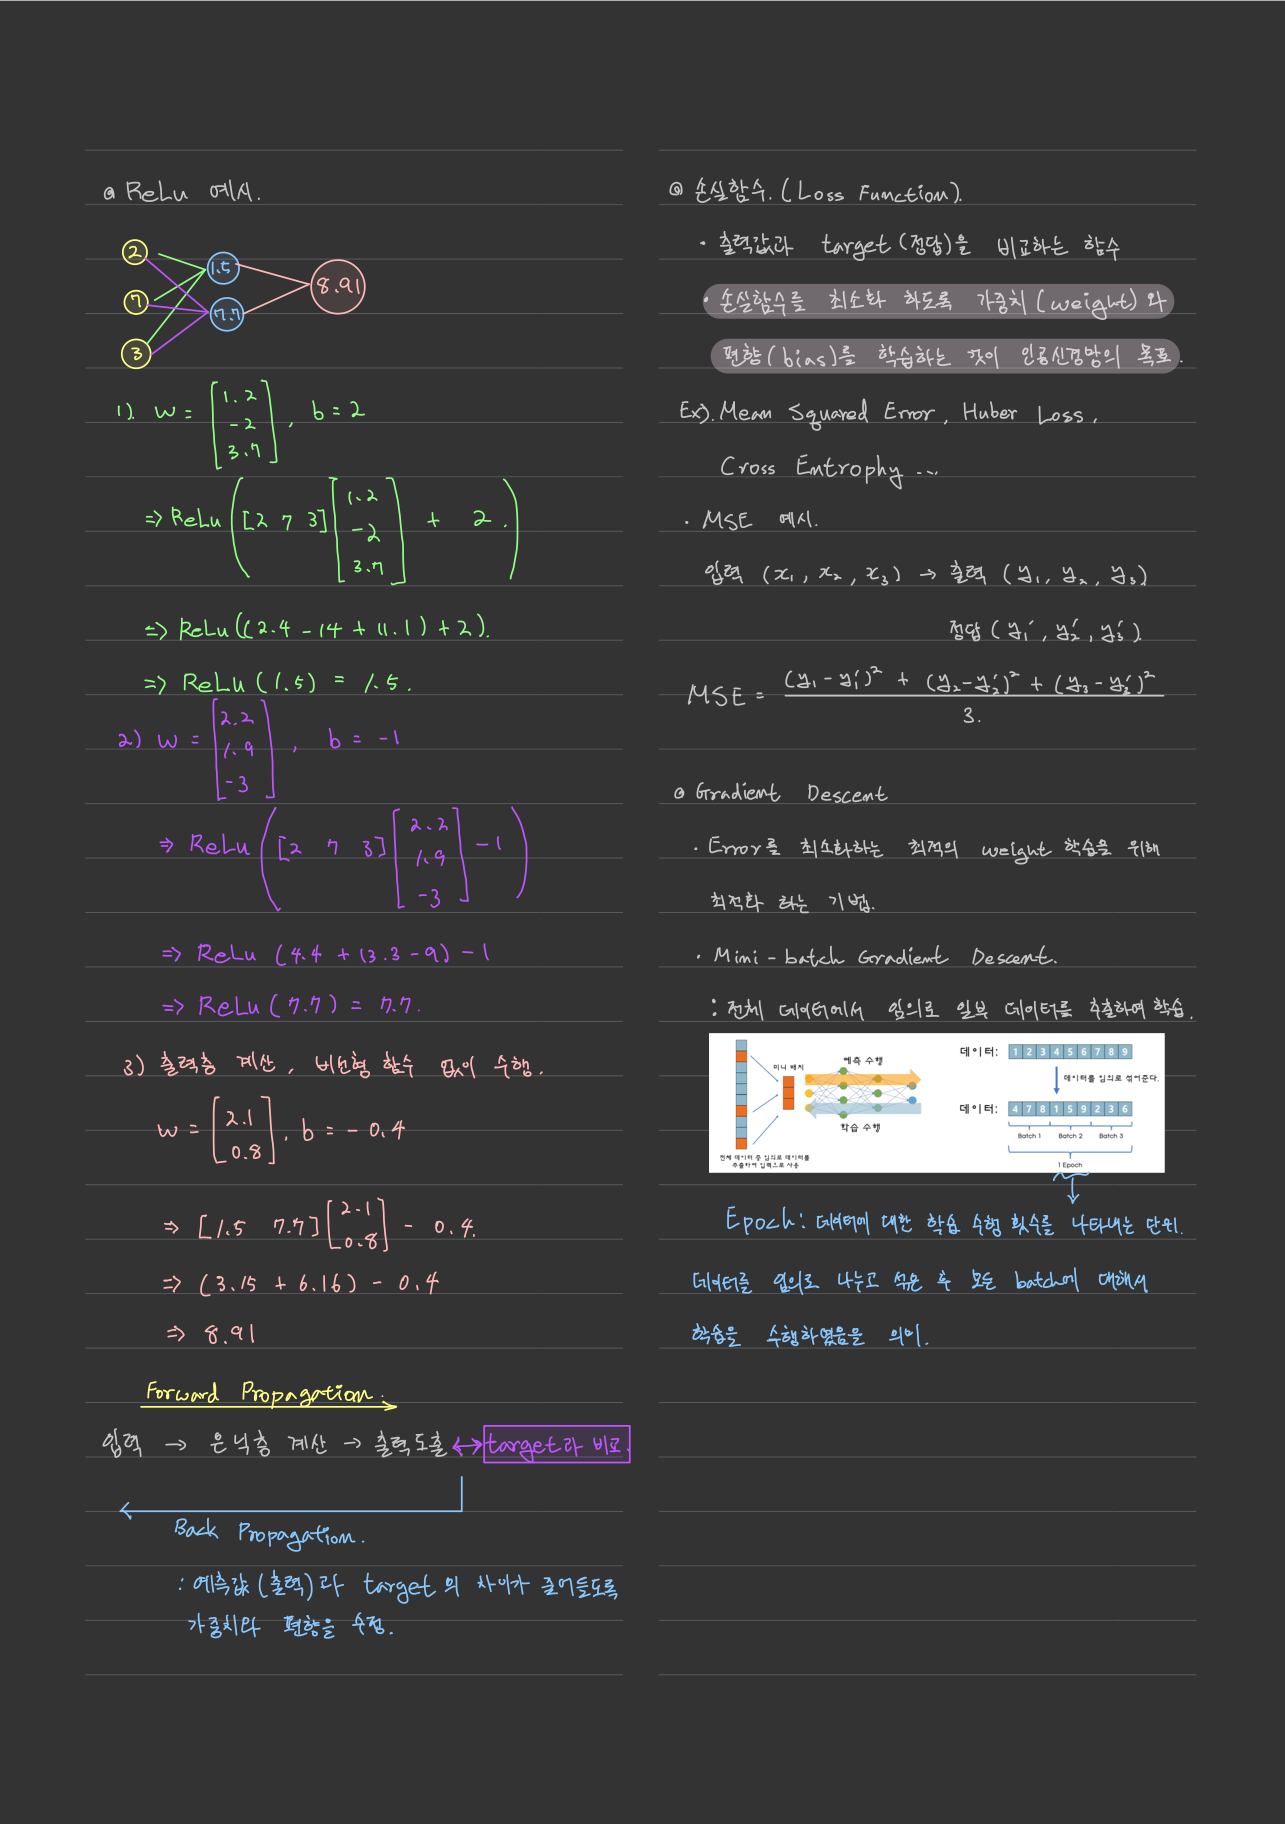 @ ReLu 예시.
2
7
3
1.5
7.7
8.91
1). w = [1.2 -2 3.7], b = 2
=> ReLu([2 7 3][1.2 -2 3.7] + 2.)
=> ReLu((2.4 - 14 + 11.1) + 2).
=> ReLu(1.5) = 1.5.
2) w = [2.2 1.9 -3], b = -1
=> ReLu([2 7 3][2.2 1.9 -3] -1)
=> ReLu (4.4 + 13.3 - 9) - 1
=> ReLu(7.7) = 7.7.
3) 출력층 계산, 비선형 함수 없이 수행.
w = [2.1 0.8], b = -0.4
=> [1.5 7.7][2.1 0.8] - 0.4.
=> (3.15 + 6.16) - 0.4
=> 8.91
Forward Propagation.
입력 → 은닉층 계산 → 출력도출 ↔ target과 비교.
Back Propagation.
: 예측값(출력)과 target의 차이가 줄어들도록
가중치와 편향을 수정.
@ 손실함수. (Loss Function).
· 출력값과 target(정답)을 비교하는 함수
· 손실함수를 최소화 하도록 가중치(weight)와
편향(bias)를 학습하는 것이 인공신경망의 목표.
Ex). Mean Squared Error, Huber Loss,
Cross Entrophy ...
· MSE 예시.
입력 (x₁, x₂, x₃) → 출력 (y₁, y₂, y₃)
정답 (y₁', y₂', y₃')
MSE = (y₁ - y₁')² + (y₂ - y₂')² + (y₃ - y₃')² / 3.
@ Gradient Descent
· Error를 최소화하는 최적의 weight 학습을 위해
최적화 하는 기법.
· Mini-batch Gradient Descent.
: 전체 데이터에서 임의로 일부 데이터를 추출하여 학습.
미니 배치
예측 수행
학습 수행
전체 데이터 중 임의로 데이터를
추출하여 입력으로 사용
데이터: 1 2 3 4 5 6 7 8 9
데이터를 임의로 섞어준다.
데이터: 4 7 8 1 5 9 2 3 6
Batch 1 Batch 2 Batch 3
1 Epoch
Epoch: 데이터에 대한 학습 수행 횟수를 나타내는 단위.
데이터를 임의로 나누고 섞은 후 모든 batch에 대해서
학습을 수행하였음을 의미.